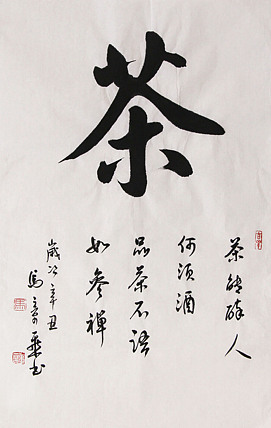 茶
茶能醉人
何須酒
品茶不語
如參禪
歲次辛丑
馬